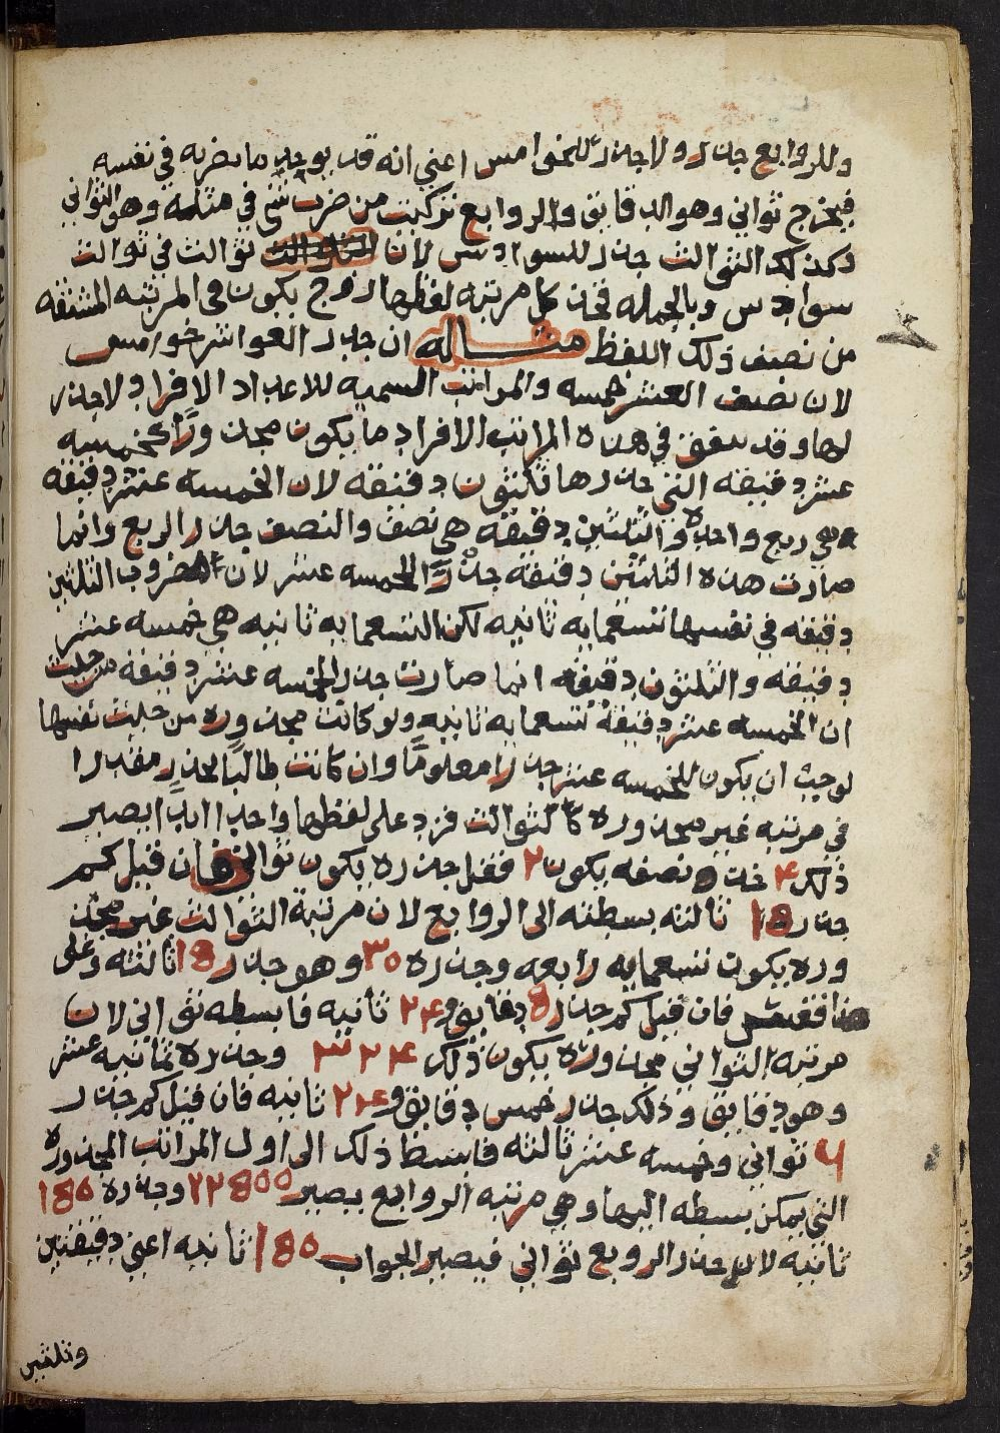 وللروابع جذر ولا جذر للخوامس اعني انه قد يوجد ما يضربه في نفسه
فيخرج ثواني وهو الدقايق والروابع تركبت من ضرب شي في مثله وهو الثواني
وكذلك الثوالث جذر للسوادس لان ثوالث في ثوالث
سوادس وبالجمله فجذر كل مرتبه لفظها زوج يكون في المرتبه المشتقه
من نصف ذلك اللفظ مثاله ان جذر العواشر خوامس
لان نصف العشر خمسه والمراتب السميه للاعداد الافراد لا جذر
لها وقد يتفق في هذه المراتب الافراد ما يكون مجذورًا كخمسه
عشر دقيقه التي جذرها ثلثون دقيقه لان الخمسه عشر دقيقه
هي ربع واحد والثلثين دقيقه هي نصف والنصف جذر الربع وانما
صارت هذه الثلثين دقيقه جذرًا للخمسه عشر لان مضروب الثلثين
دقيقه في نفسها تسعمايه ثانيه لكن التسعمايه ثانيه هي خمسه عشر
دقيقه والثلثون دقيقه انما صارت جذر الخمسه عشر دقيقه من حيث
ان الخمسه عشر دقيقة تسعمايه ثانيه ولو كانت مجذوره من حيث نفسها
لوجب ان يكون للخمسه عشر جذرًا معلومًا وان كانت طالبًا لجذر مقدرا
في مرتبه غير مجذوره كالثوالث فزد على لفظها واحد ابدًا يصير
ذلك ۴ خذ نصفه يكون ۲ فقل جذره يكون ثواني فان قيل كم
جذر 18 ثالثه بسطته الى الروابع لان مرتبة الثوالث غير مجذ
وره يكون تسعمايه رابعه وجذره ۳٥ وهو جذر 18 ثالثه وعلى
هذا فقس فان قيل كم جذر 8 دقايق و ۲۴ ثانيه فابسطه ثواني لان
مرتبه الثواني مجذوره يكون ذلك ۳۲۴ وجذره ثمانيه عشر
وهو دقايق وذلك جذر خمس دقايق و ۲۴ ثانيه فان قيل كم جذر
۹ ثواني وخمسه عشر ثالثه فابسط ذلك الى اول المراتب المجذوره
التي يمكن بسطه اليها وهي مرتبه الروابع يصير ۲۲8٥٥ وجذره 18٥
ثانيه لان جذر الروبع ثواني فيصير الجواب 18٥ ثانيه اعني دقيقتين
وثلثين